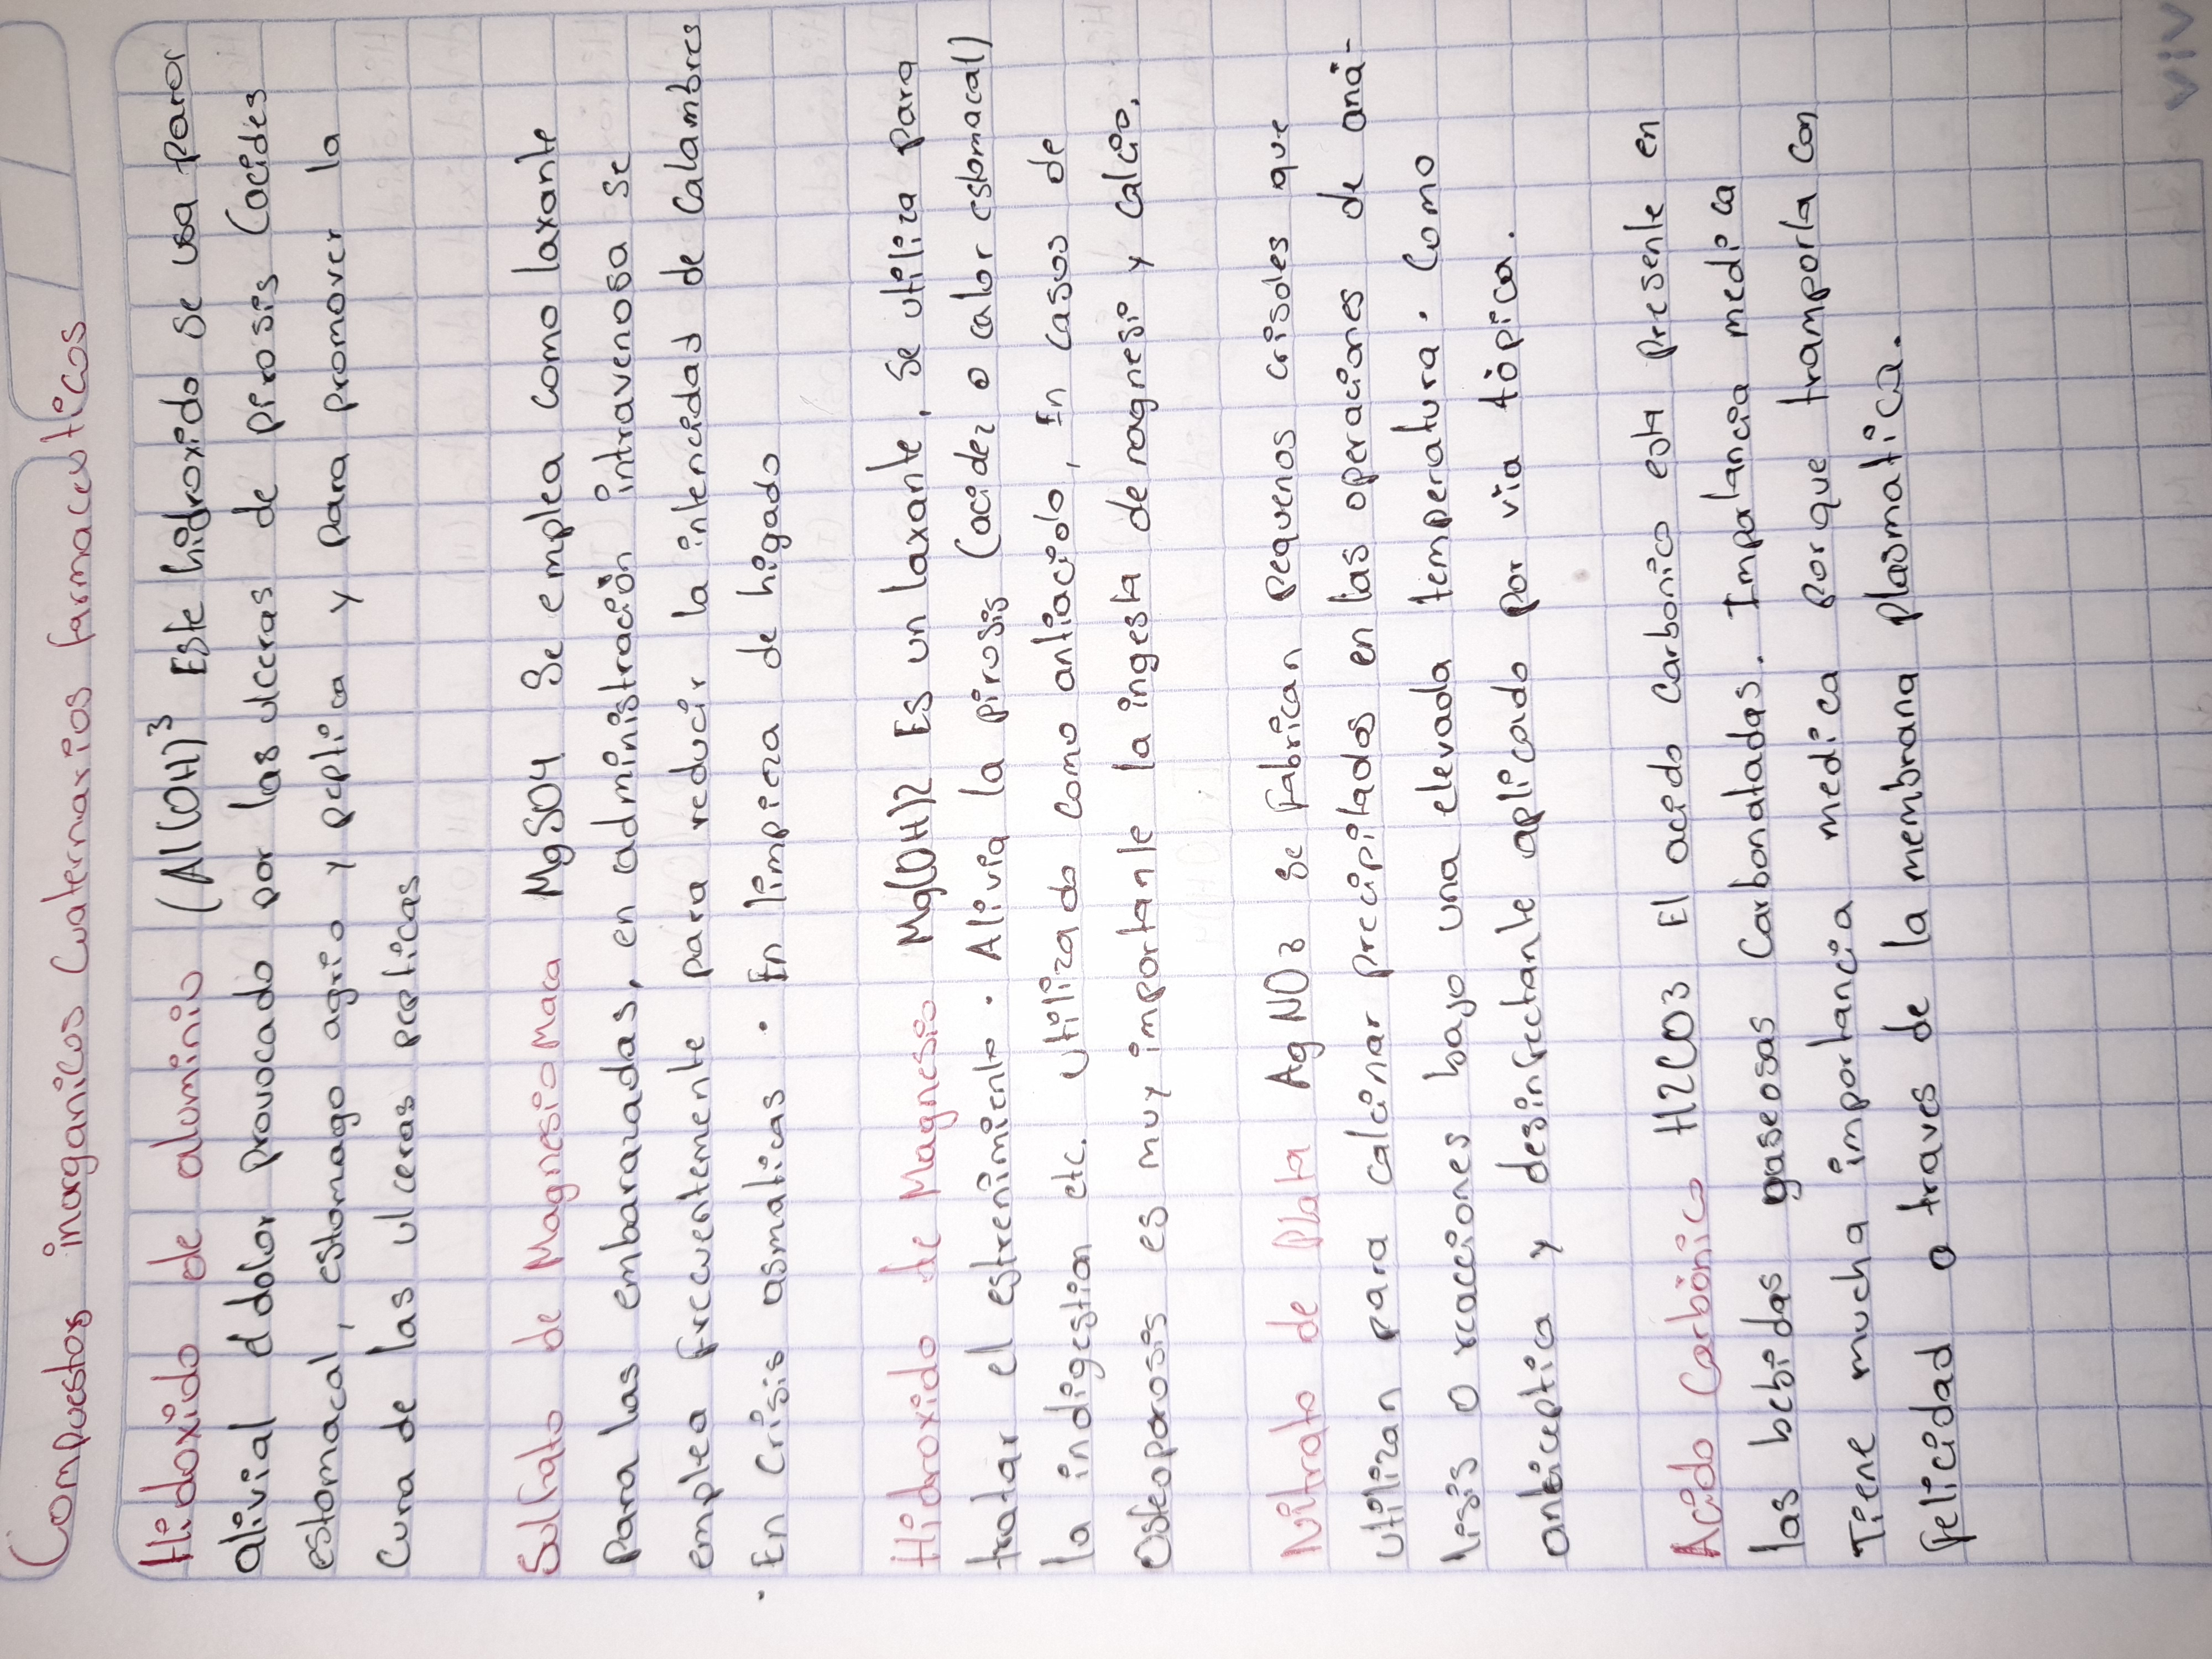 Compuestos inorganicos Cuaternarios farmaceuticos
Hidoxido de aluminio (Al(OH)³ Este hidroxido se usa parar
alivial el dolor provocado por las ulceras de pirosis (acides
estomacal, estomago agrio y peptica y para promover la
Cura de las ulceras pepticas
Sulfato de Magnesio Maca MgSO4 Se emplea como laxante
Para las embarazadas, en administración intravenosa se
emplea frecuentemente para reducir la intencidad de Calambres
. En Crisis asmaticas . En limpieza de higado
Hidroxido de Magnesio Mg(OH)2 Es un laxante, se utiliza para
tratar el estreñimiento. Alivia la pirosis (acidez o calor estomacal)
la indigestion etc. Utilizado como antiacido, En casos de
Osteoporosis es muy importante la ingesta de magnesi y calcio.
Nitrato de Plata AgNO3 se Fabrican pequenos crisoles que
utilizan para calcinar precipitados en las operaciones de aná-
lisis o reacciones bajo una elevada temperatura. Como
anticeptica y desinfectante aplicado por via tópica.
Acido Carbónico H2CO3 El acido carbonico esta presente en
las bebidas gaseosas Carbonatadas. Importancia medica
Tiene mucha importancia medica porque tramporta con
felicidad a traves de la membrana plasmatica.
VIV